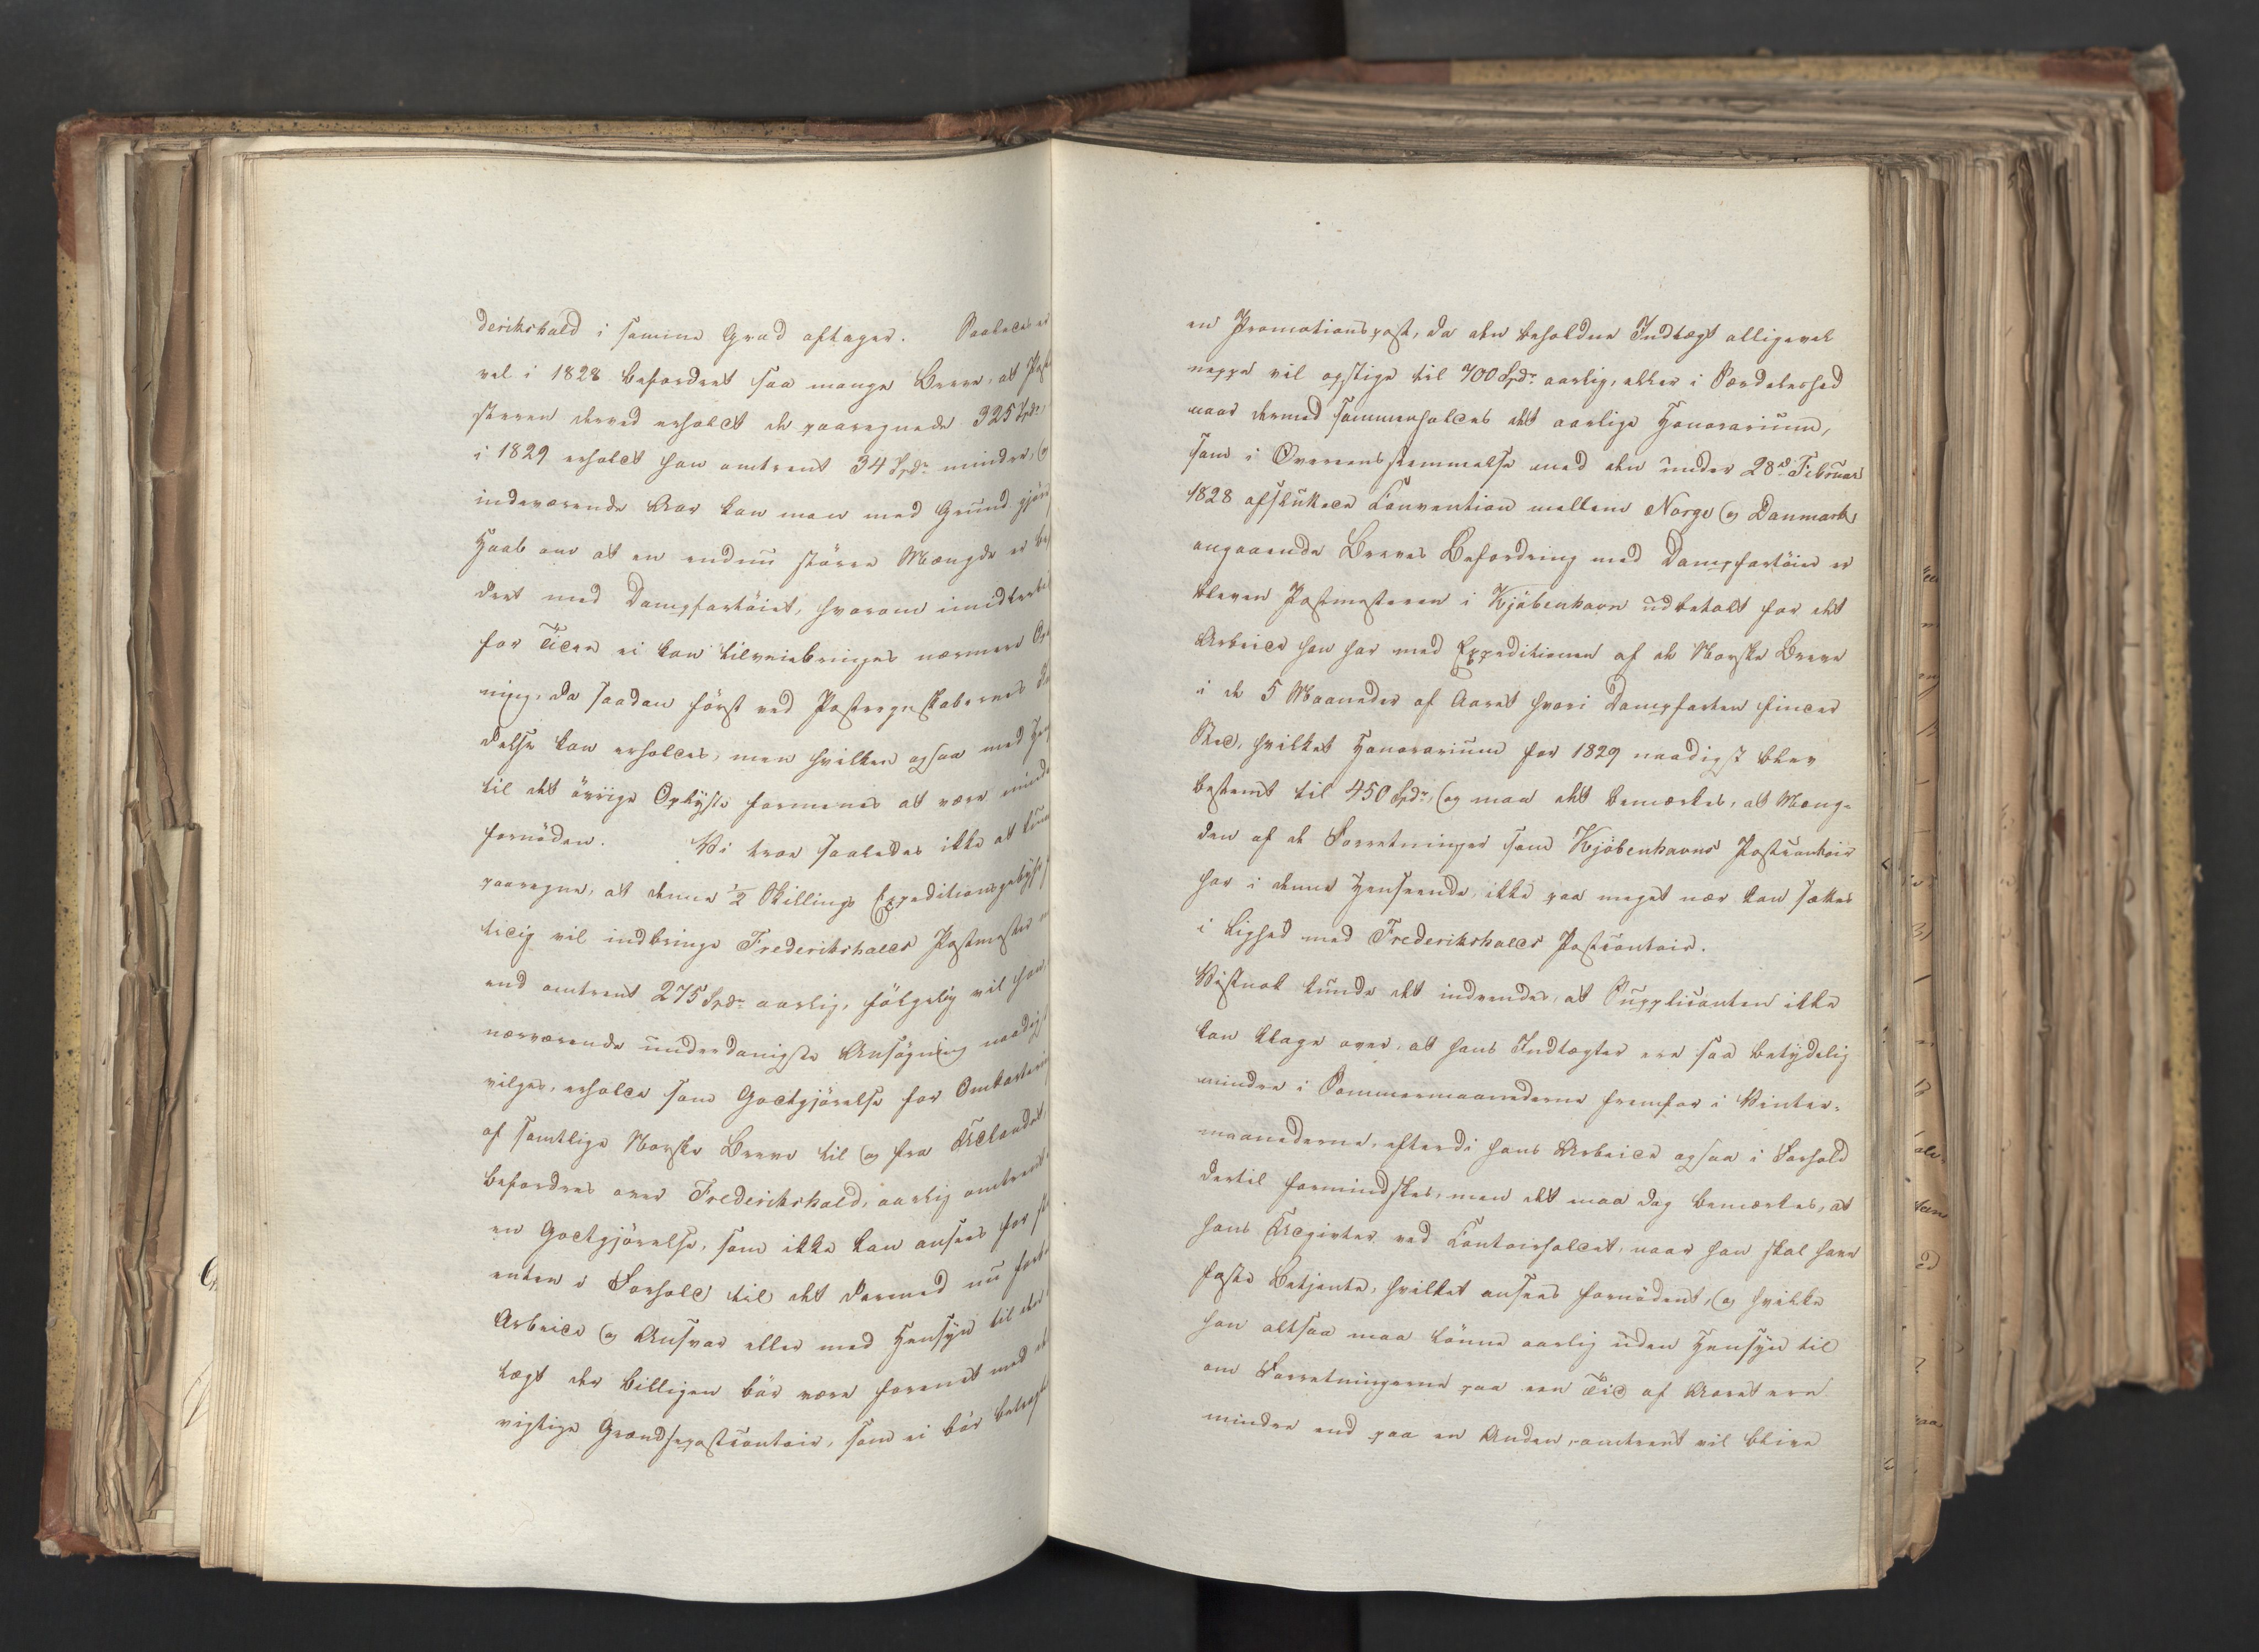 derikshald i samme Grad aftager. Saaledes er
vel i 1828 befordret saa mange Breve, at Post
steren derved erholdt de paaregnede 325 Spdr
i 1829 erholdt han omtrent 34 Spdr mindre, og
indeværende Aar kan man med Grund gjøre
Haab om at en endnu större Mængde er be
dret med Dampfartöiet, hvorom imidlerti
for Tiden ei kan tilveiebringes nærmere Op
ning, da saadan först ved Postregnskabernes
delse kan erholdes, men hvilken ogsaa med Hen
til det övrige Oplyste formenes at være
fornöden. Vi troe saaledes ikke at kun
paaregne, at denne ½ Skillings Expeditionsgebyhr
tidig vil indbringe Frederikshalds Postmester
end omtrent 275 Spdr aarlig, fölgelig vil han
nærværende underdanigste Ansögning naadigst
vilges, erholde som Godtgjörelse for Omkarteri
af samtlige Norske Breve til og fra Udlandet,
befordres over Frederikshald, aarlig omtrent
en Godtgjörelse, som ikke kan ansees for
enten i Forhold til det dermed nu
Arbeide og Ansvar eller med Hensyn til den
tægt der billigen bör være forenet med et
vigtige Grændsepostcontoir, som ei bör betragt
en Promotionspost, da den beholdne Indtægt alligevel
neppe vil opstige til 700 Spdr aarlig, eller i Særdeleshed
naar dermed sammenholdes det aarlige Honorarium,
som i Overeensstemmelse med den under 28d Februar
1828 afsluttede Convention mellem Norge og Danmark
angaaende Breves Befordring med Dampfartöier er
bleven Postmesteren i Kjöbenhavn udbetalt for det
Arbeide han har med Expeditionen af de Norske Breve
i de 5 Maaneder af Aaret hvori Dampfarten finder
Sted, hvilket Honorarium for 1829 naadigst blev
bestemt til 450 Spdr, og maa det bemærkes, at Mæng-
den af de Forretninger som Kjöbenhavns Postcontoir
har i denne Henseende, ikke paa meget nær kan sættes
i Lighed med Frederikshalds Postcontoir.
Vistnok kunde det indvendes, at Supplicanten ikke
kan klage over, at hans Indtægter ere saa betydelig
mindre i Sommermaanederne fremfor i Vinter-
maanederne, efterdi hans Arbeide ogsaa i Forhold
dertil formindskes, men det maa dog bemærkes, at
hans Udgivter ved Contoirholdet, naar han skal have
faste Betjente, hvilket ansees fornödent, og hvilke
han altsaa maa lönne aarlig uden Hensyn til
om Forretningerne paa een Tid af Aaret ere
mindre end paa en Anden, omtrent vil blive